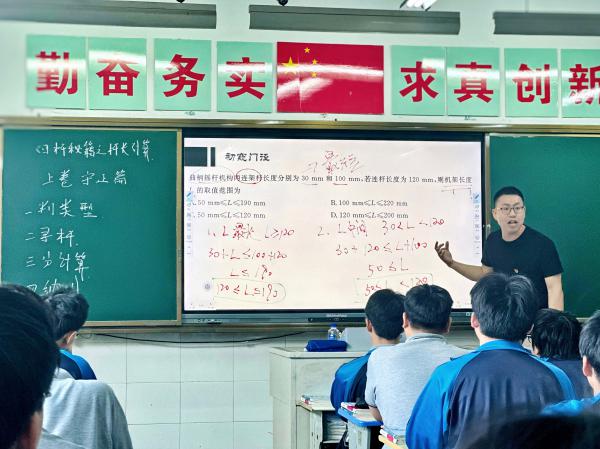 勤奋务实 求真创新
《习杆秘籍之杆长计算》
上卷 守正篇
一.判类型
二.寻杆
三.分计算
初窥门径
曲柄摇杆机构两连架杆长度分别为 30 mm 和 100 mm,若连杆长度为 120 mm,则机架长度
L 的取值范围为
A. 50 mm≤L≤190 mm
B. 100 mm≤L≤220 mm
C. 50 mm≤L≤120 mm
D. 120 mm≤L≤200 mm
1、L最长 L≥120
30+L≤100+120
L≤190
120≤L≤190
2、L中间 30≤L≤120
30+120≤L+100
50≤L
50≤L≤120